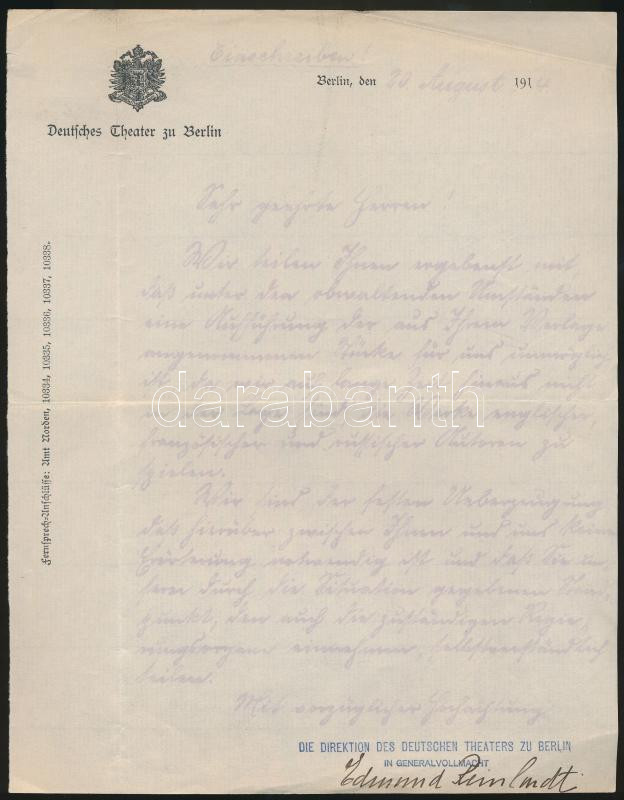 Einschreiben!
Berlin, den 20. August 1914.
Deutsches Theater zu Berlin
Fernsprech-Anschlüsse: Amt Norden, 10334, 10335, 10336, 10337, 10338.
Sehr geehrte Herren!
Wir teilen Ihnen ergebenst mit,
daß unter den obwaltenden Umständen
eine Aufführung der aus Ihrem Verlage
angenommenen Stücke für uns unmöglich
ist, da wir auf lange Zeit hinaus nicht
in der Lage sind, die Werke englischer,
französischer und russischer Autoren zu
spielen.
Wir sind der festen Ueberzeugung
daß hierüber zwischen Ihnen und uns keine
Erörterung notwendig ist und daß Sie un-
seren durch die Situation gegebenen Stand-
punkt, den auch die zuständigen Regie-
rungsorgane einnehmen, selbstverständlich
teilen.
Mit vorzüglicher Hochachtung
DIE DIREKTION DES DEUTSCHEN THEATERS ZU BERLIN
IN GENERALVOLLMACHT
Edmund Reinhardt
darabanth